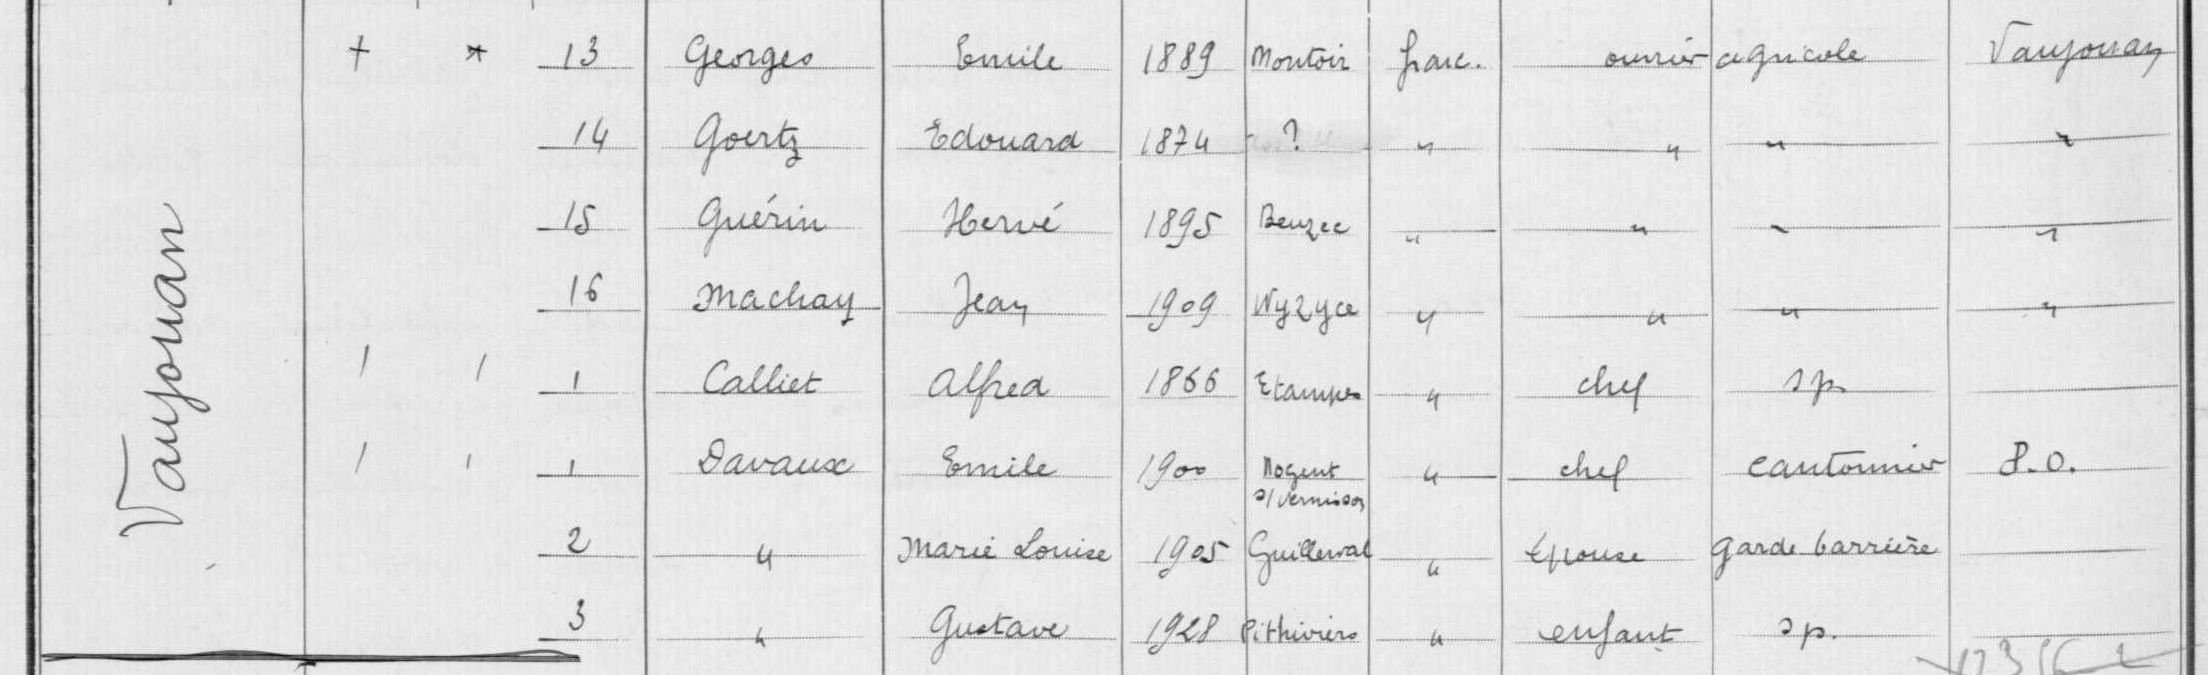 Vaujouan
+ * 13 Georges Emile 1889 Montoir franc. ouvrier agricole Vaujouan
14 Goertz Edouard 1874 ? " " " "
15 Guérin Hervé 1895 Beuzec " " " "
16 Machay Jean 1909 Wyzyce " " " "
1 1 1 Calliet Alfred 1866 Etampes " chef sp
1 1 1 Davaux Emile 1900 Nogent s/Vernisson " chef cantonnier P.O.
2 " Marie Louise 1905 Guillerval " épouse garde barrière
3 " Gustave 1928 Pithiviers " enfant sp.